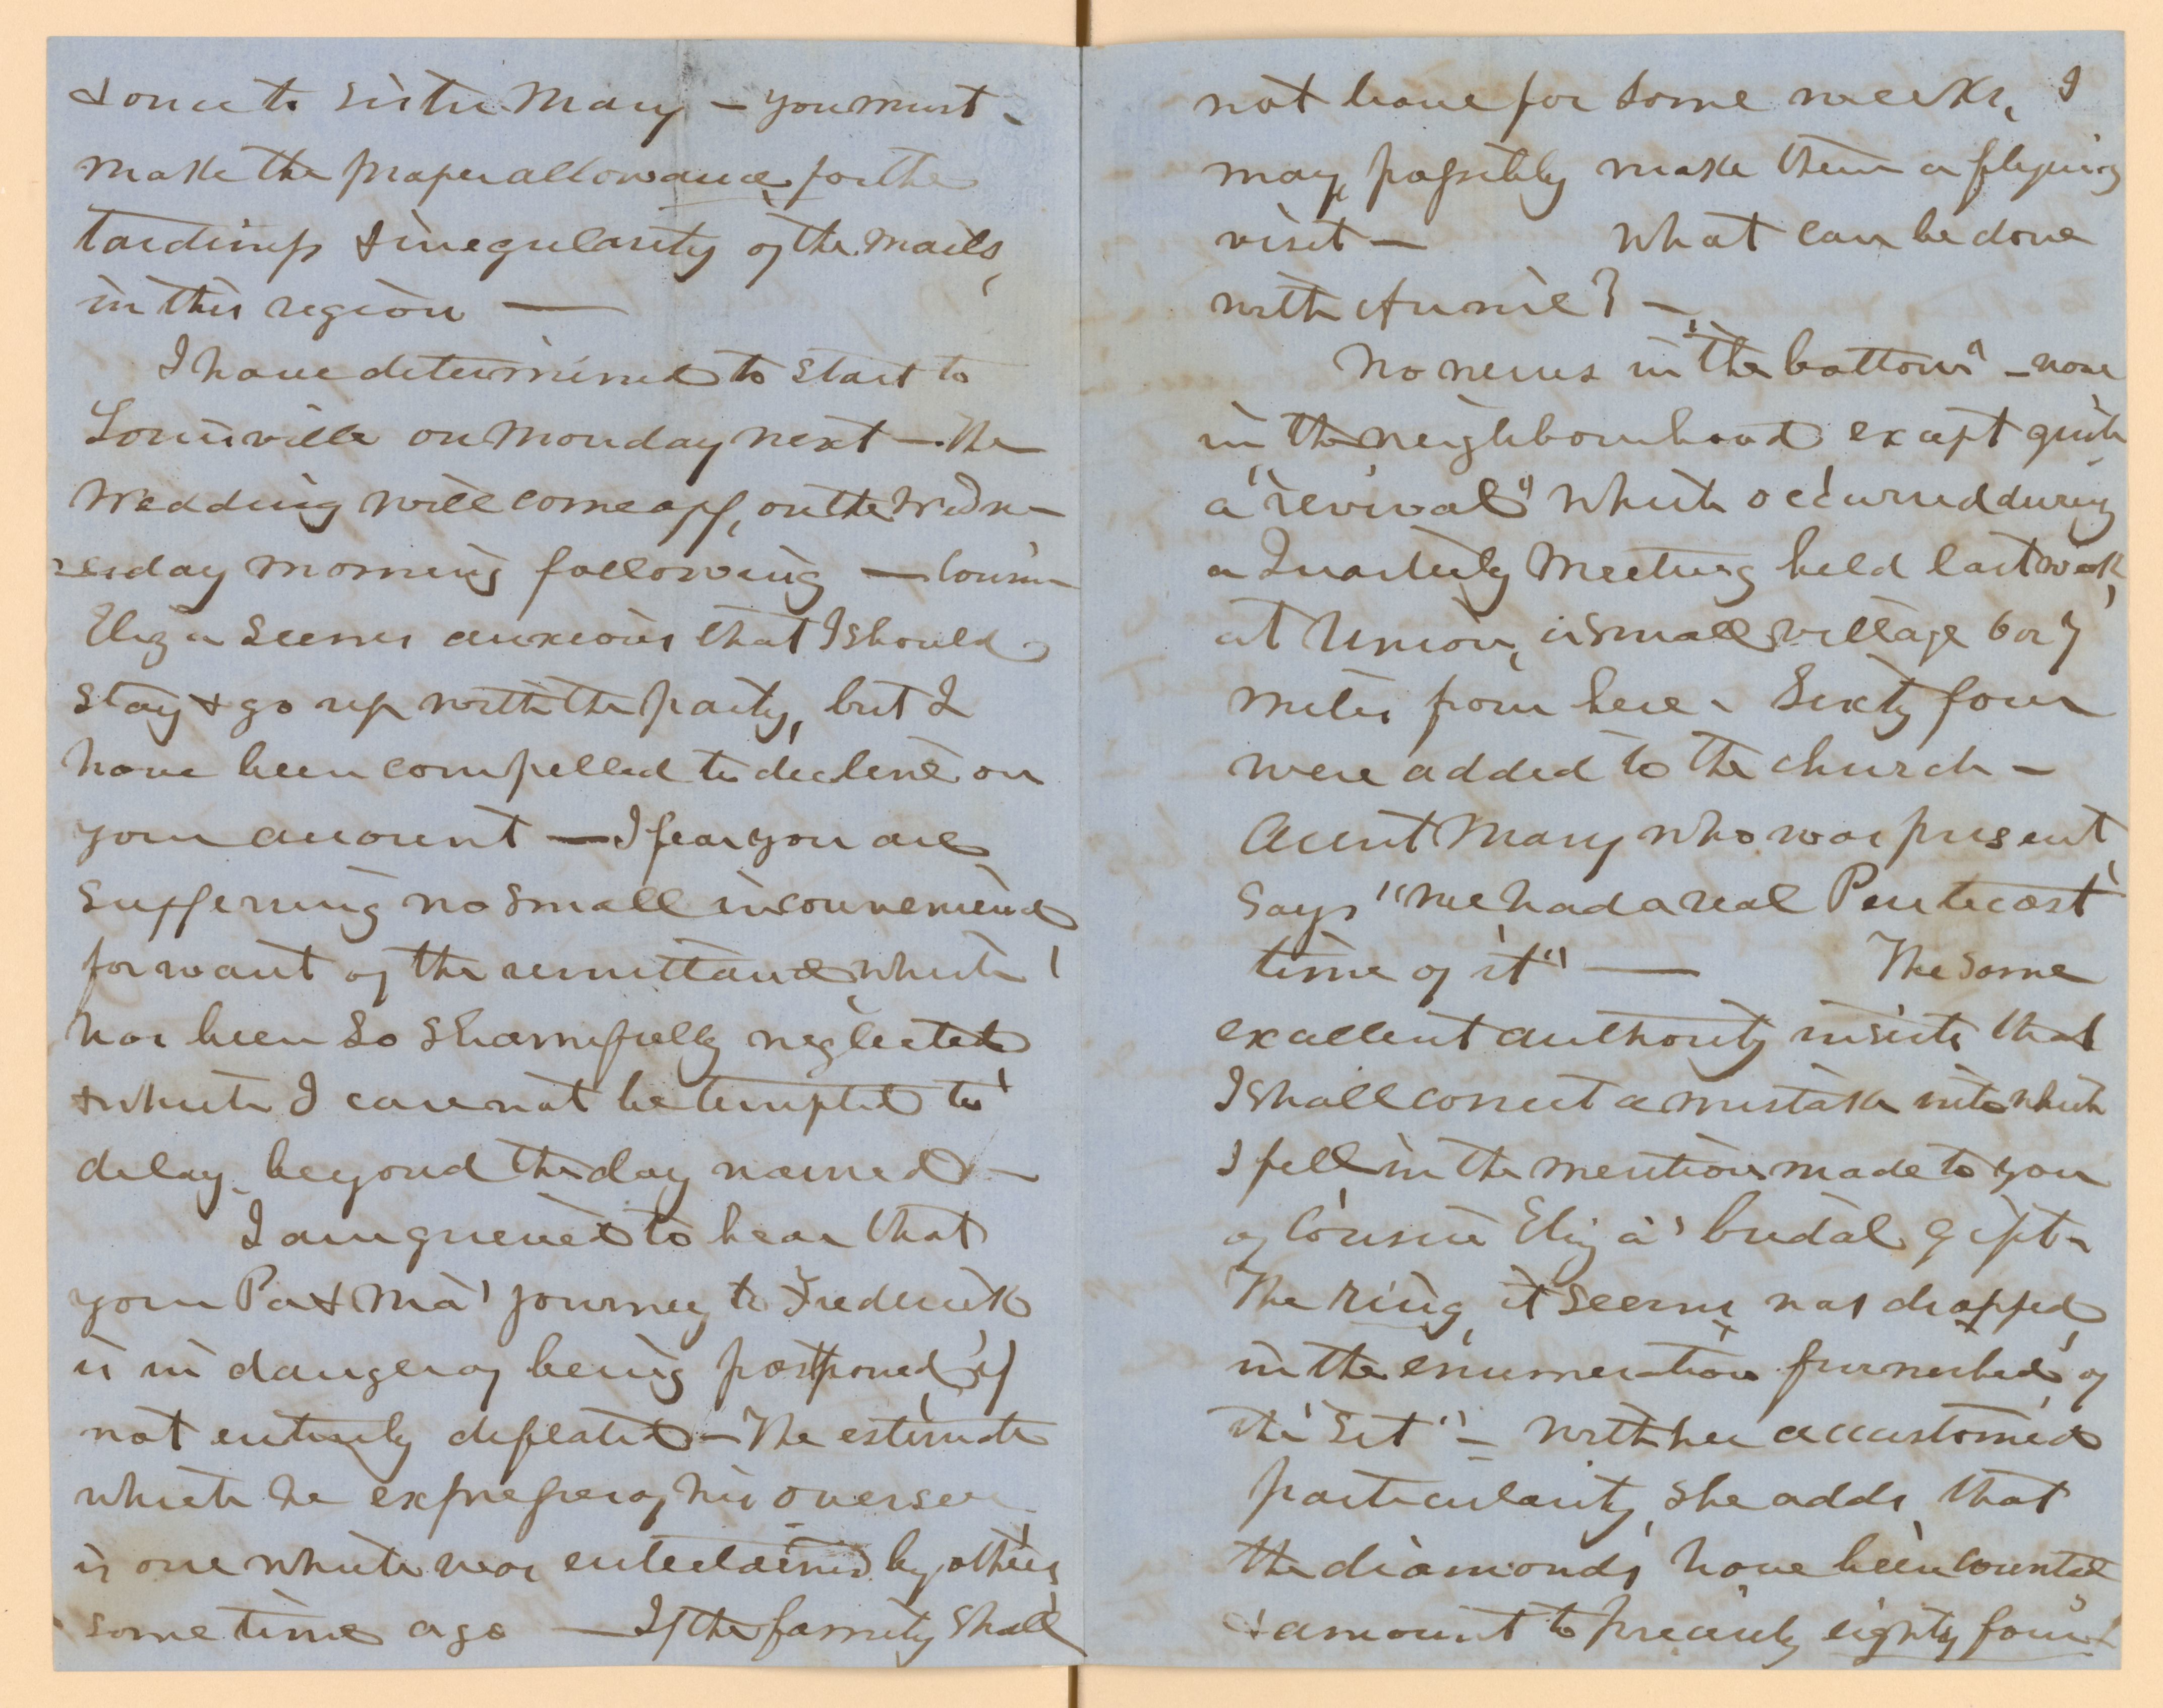 & once to Sister Mary – you must
make the proper allowance for the
tardiness & irregularity of the mails,
in this region —
I have determined to start to
Louisville on Monday next – The
Wedding will come off, on the Wedn-
esday morning following – Cousin
Eliza seems anxious that I should
stay & go up with the party, but I
have been compelled to decline on
your account – I fear you are
suffering no small inconvenience
for want of the remittance, which
has been so shamefully neglected
& which I care not be tempted to
delay beyond the day named –
I am grieved to hear that
your Pa & Ma's journey to Frederick
is in danger of being postponed, if
not entirely defeated – The estimate
which he expresses of his overseer
is one which was entertained by others
some time ago – If the family shall
not leave for some weeks, I
may, possibly make them a flying
visit – What can be done
with Annie? –
No news in "the bottom" – none
in the neighbourhood except quite
a "revival" which occurred during
a Quarterly Meeting held last week,
at Union, a small village 6 or 7
miles from here – Sixty four
were added to the church –
Aunt Mary who was present
says "we had a real Pentecost
time of it" — The same
excellent authority insists that
I shall correct a mistake into which
I fell in the mention made to you
of Cousin Eliza's bridal gift –
The ring, it seems, was dropped
in the enumeration furnished, of
the "set" – with her accustomed
particularity, she adds, that
the diamonds, have been counted
& amount to precisely eighty four